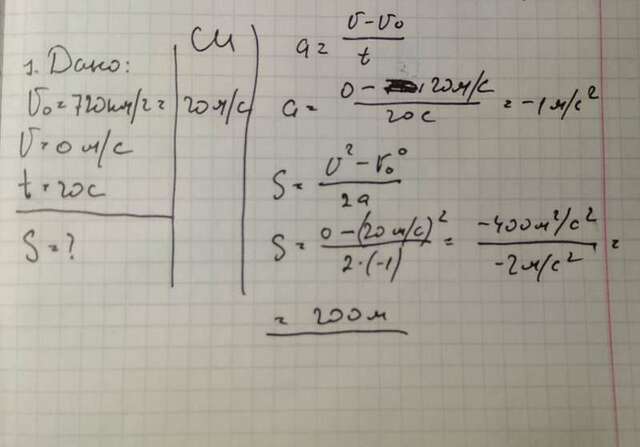 СИ
1. Дано:
V₀ = 720км/г = 20м/с
V = 0 м/с
t = 20с
S = ?
a = (V - V₀) / t
a = (0 - 20м/с) / 20с = -1м/с²
S = (V² - V₀⁰) / 2a
S = (0 - (20м/с)²) / (2·(-1)) = (-400м²/с²) / (-2м/с²) =
= 200м